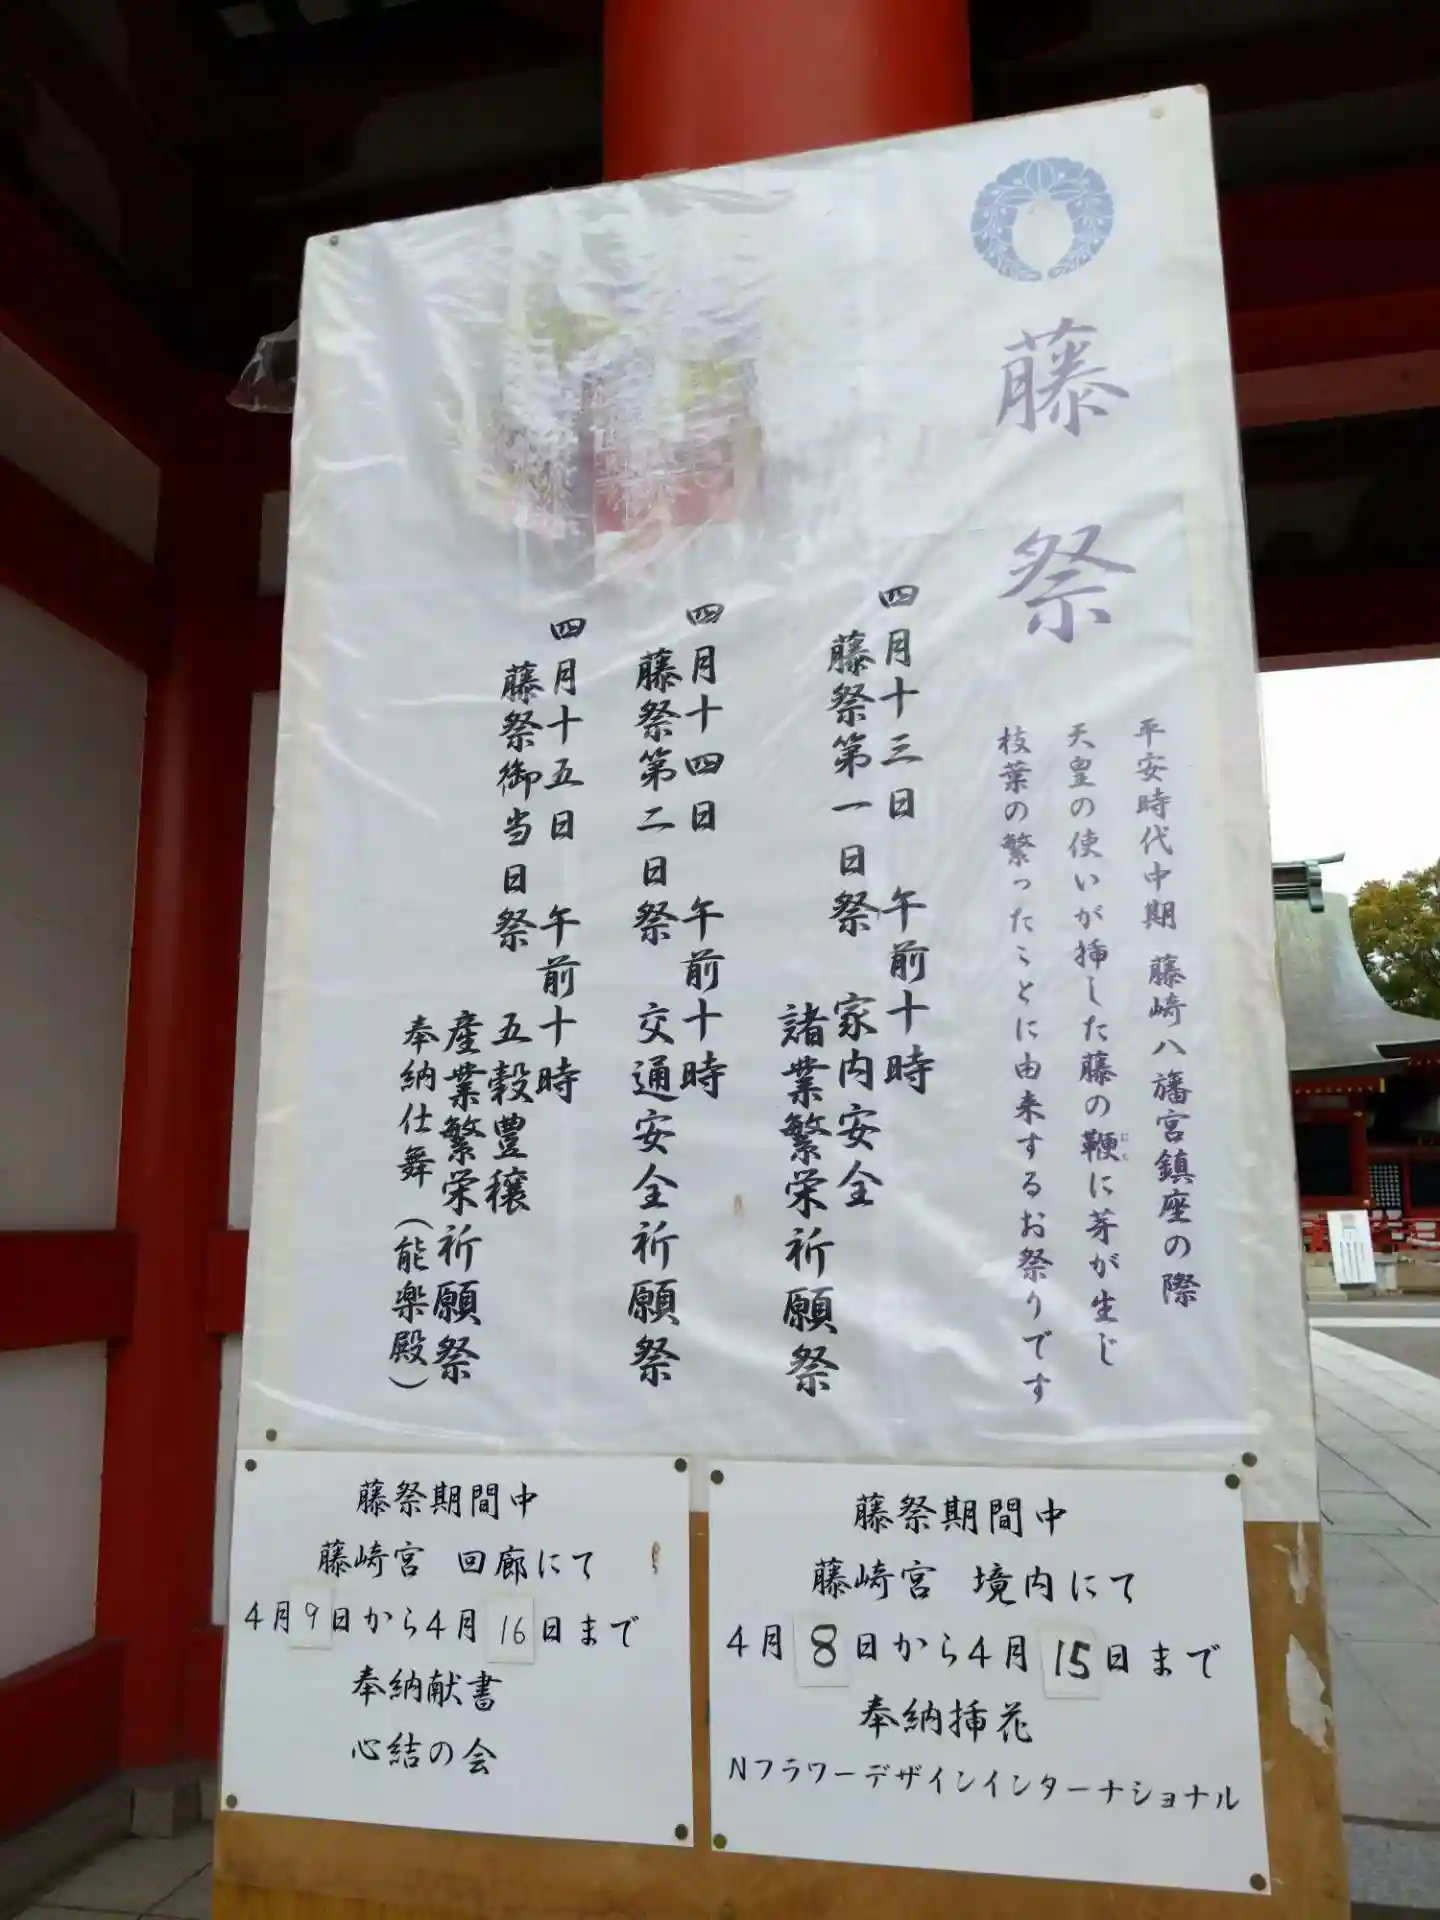 藤祭
平安時代中期 藤崎八旛宮鎮座の際
天皇の使いが挿した藤の鞭に芽が生じ
枝葉の繁ったことに由来するお祭りです
四月十三日 午前十時
藤祭第一日祭 家内安全
諸業繁栄祈願祭
四月十四日 午前十時
藤祭第二日祭 交通安全祈願祭
四月十五日 午前十時
藤祭御当日祭 五穀豊穣
産業繁栄祈願祭
奉納仕舞(能楽殿)
藤祭期間中
藤崎宮 回廊にて
4月9日から4月16日まで
奉納献書
心結の会
藤祭期間中
藤崎宮 境内にて
4月8日から4月15日まで
奉納挿花
Nフラワーデザインインターナショナル